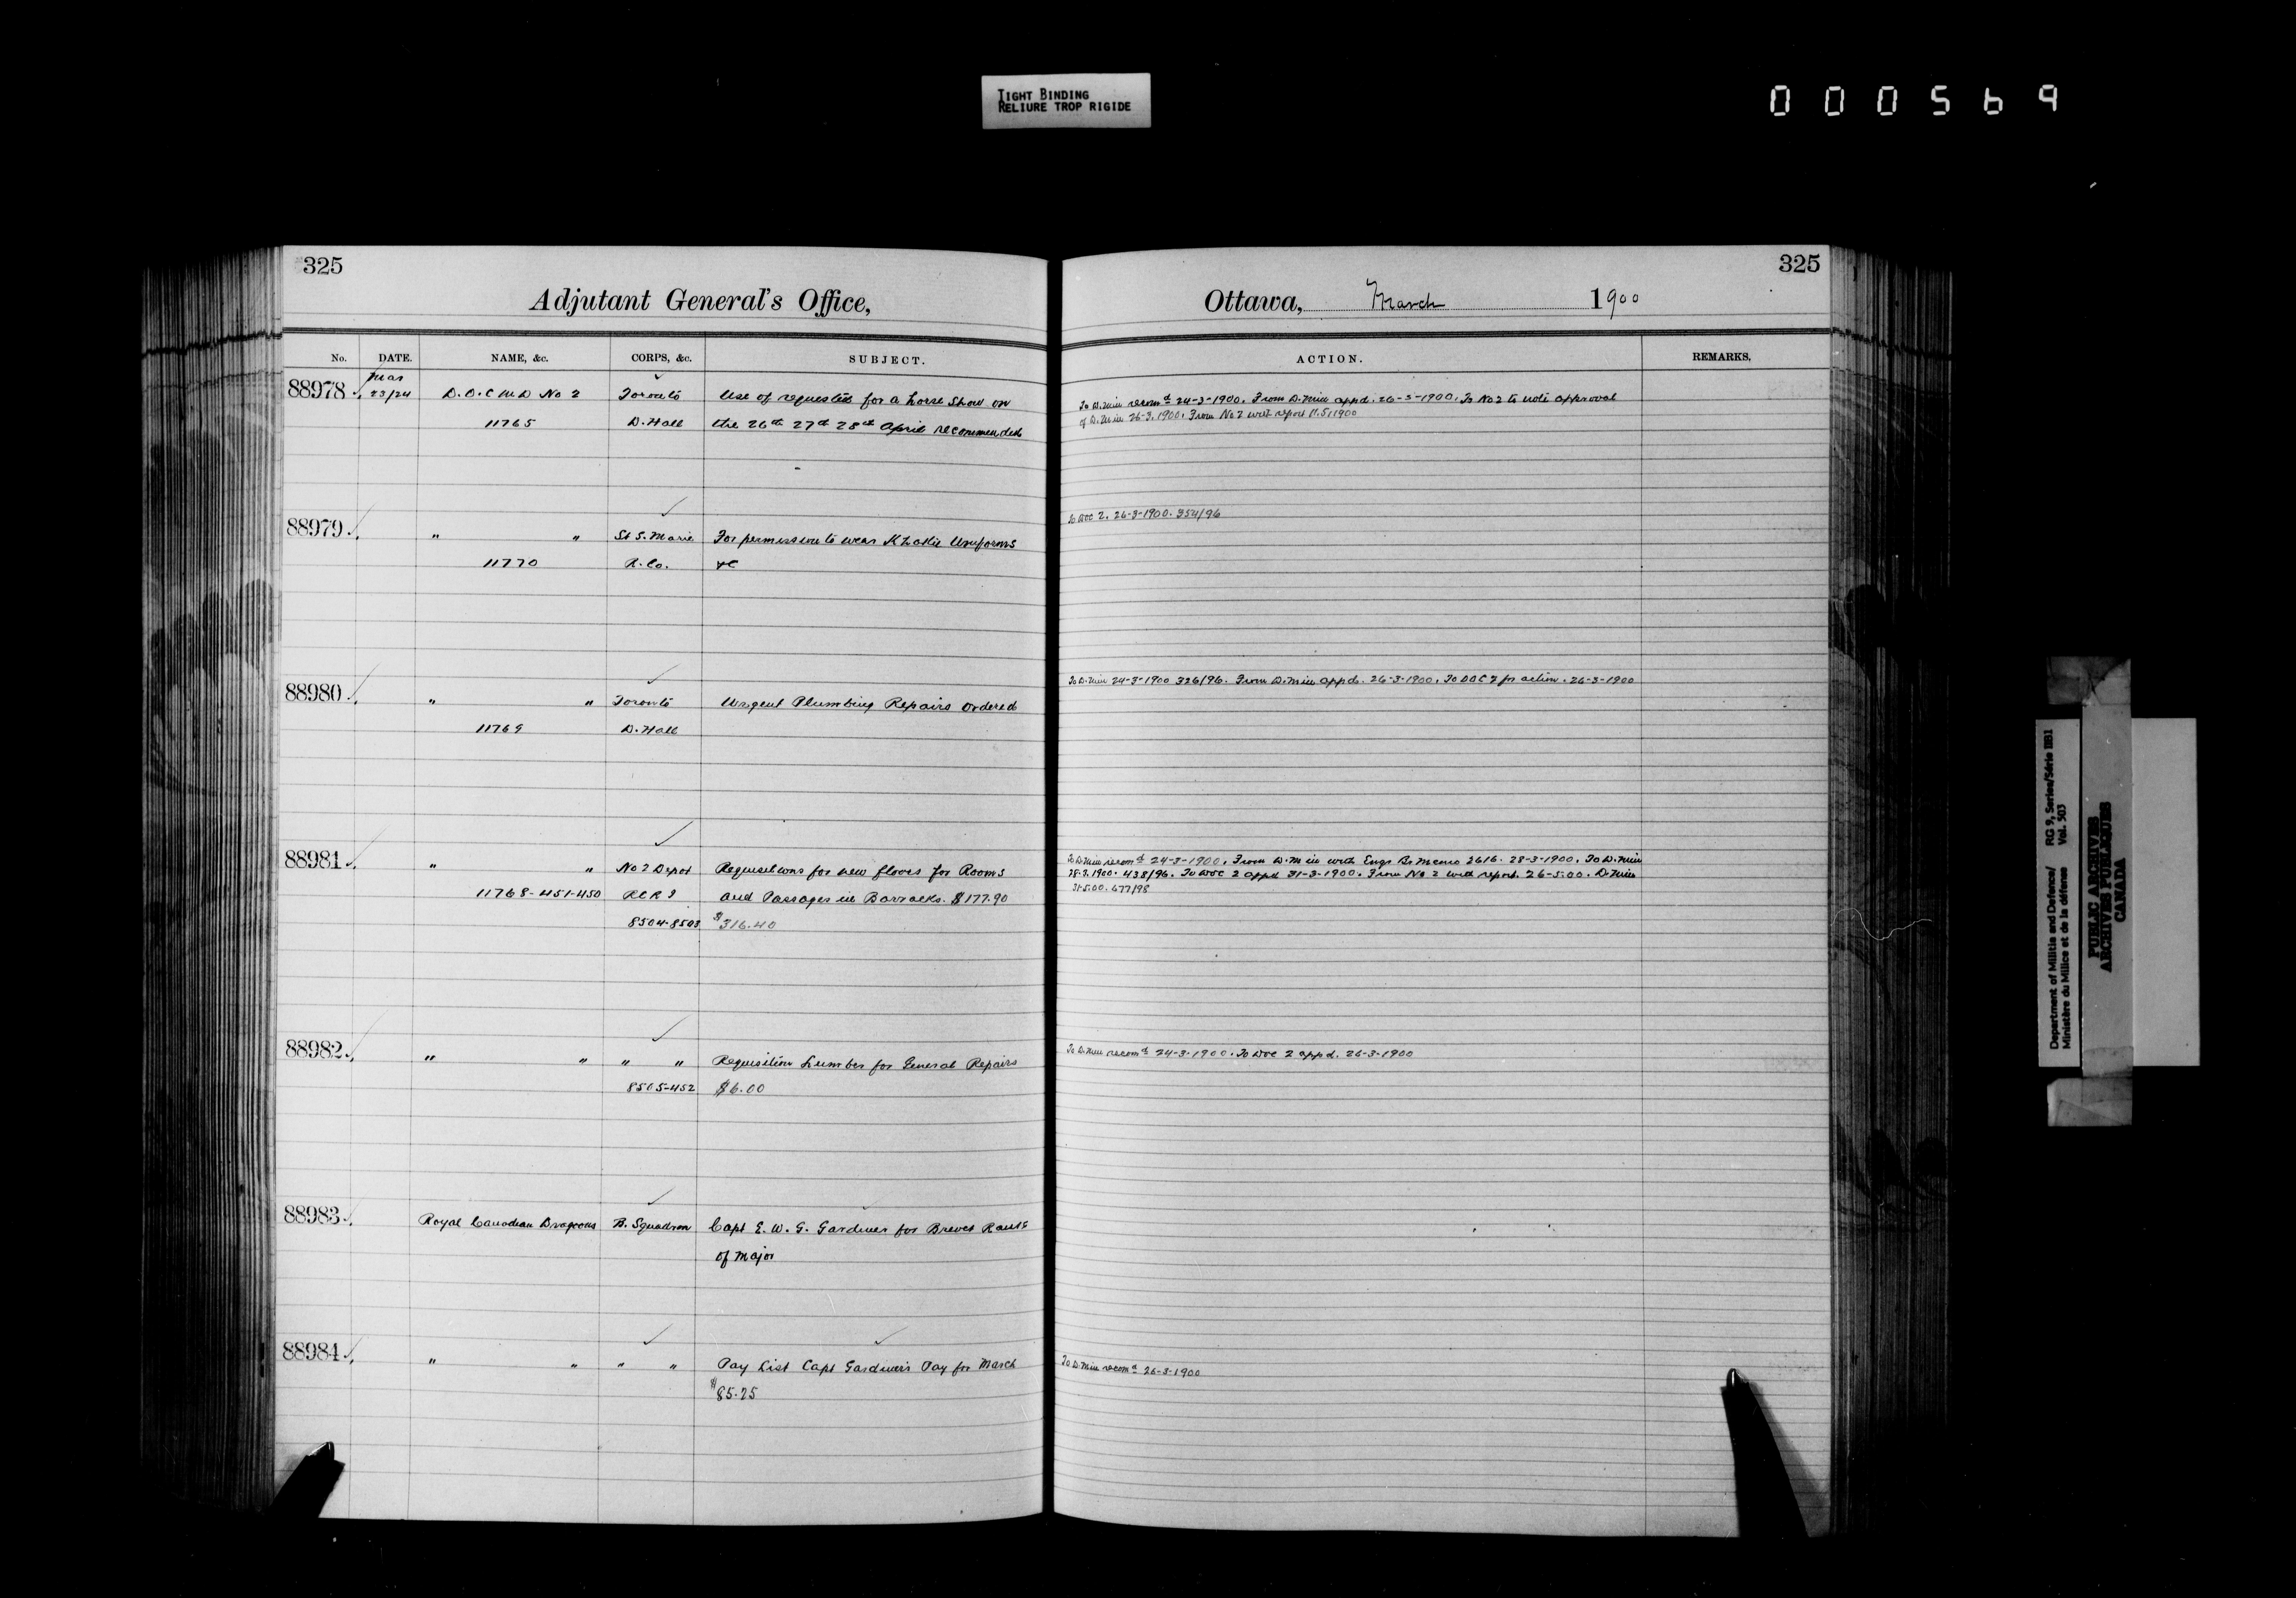 TIGHT BINDING
RELIURE TROP RIGIDE
000569
325
Adjutant General's Office,
No. DATE. NAME, &c. CORPS, &c. SUBJECT.
Mar
88978 23/24 D.O.C M.D No 2 Toronto Use of requested for a horse Show on
11765 D.Hall the 26th 27th 28th April recommended
88979 " " St S. Marie For permission to wear Khakie Uniforms
11770 R.Co. &c
88980 " " Toronto Urgent Plumbing Repairs ordered
11769 D.Hall
88981 " " No 2 Depot Requisitions for new floors for Rooms
11768-451-450 RCRI and Passages in Barracks. $177.90
8504-8503 $316.40
88982 " " " " Requisition Lumber for General Repairs
8505-452 $6.00
88983 Royal Canadian Dragoons B. Squadron Capt E. W. G. Gardiner for Brevet Rank
of Major
88984 " " " " Pay List Capt Gardiner's Pay for March
$85.25
325
Ottawa, March 1900
ACTION. REMARKS.
To D.Min recomd 24-3-1900. From D.Min appd. 26-3-1900. To No 2 to note approval
of D.Min 26-3.1900. From No 2 with report 11.5.1900
To DOC 2. 26-3-1900. 354/96
To D.Min 24-3-1900 326/96. From D.Min appd. 26-3-1900. To DOC 2 for action. 26-3-1900
To D.Min recomd 24-3-1900. From D.Min with Engr Br Memo 2616. 28-3-1900. To D.Min
28.3.1900. 438/96. To DOC 2 appd 31-3-1900. From No 2 with report. 26-5.00. D.Min
31-5.00. 677/98
To D.Min recomd 24-3-1900. To DOC 2 appd. 26-3-1900
To D.Min recomd 26-3-1900
Department of Militia and Defence/ RG 9, Series/Série IIB1
Ministère du Milice et de la défense Vol. 503
PUBLIC ARCHIVES
ARCHIVES PUBLIQUES
CANADA